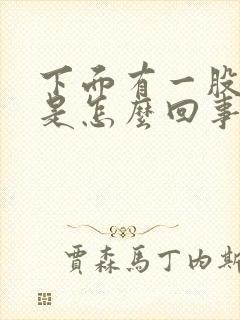 下面有一股
是怎麼回事
賈森馬丁內斯